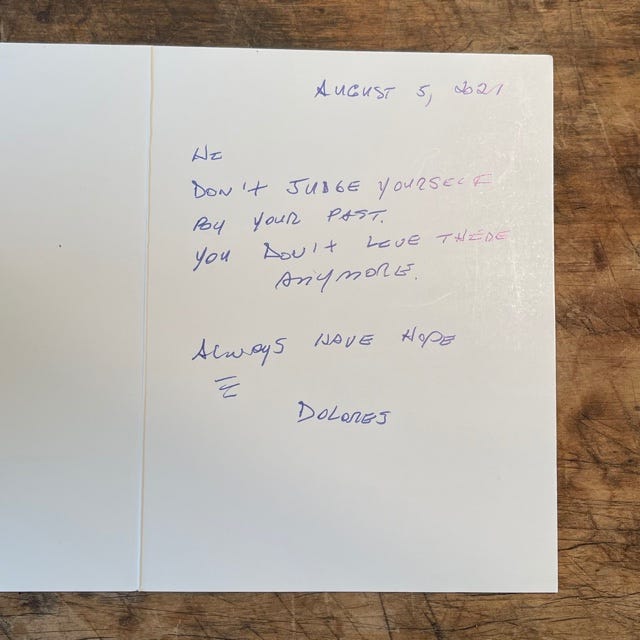 AUGUST 5, 2021
HI
DON'T JUDGE YOURSELF
BY YOUR PAST.
YOU DON'T LIVE THERE
ANYMORE.
ALWAYS HAVE HOPE
DOLORES